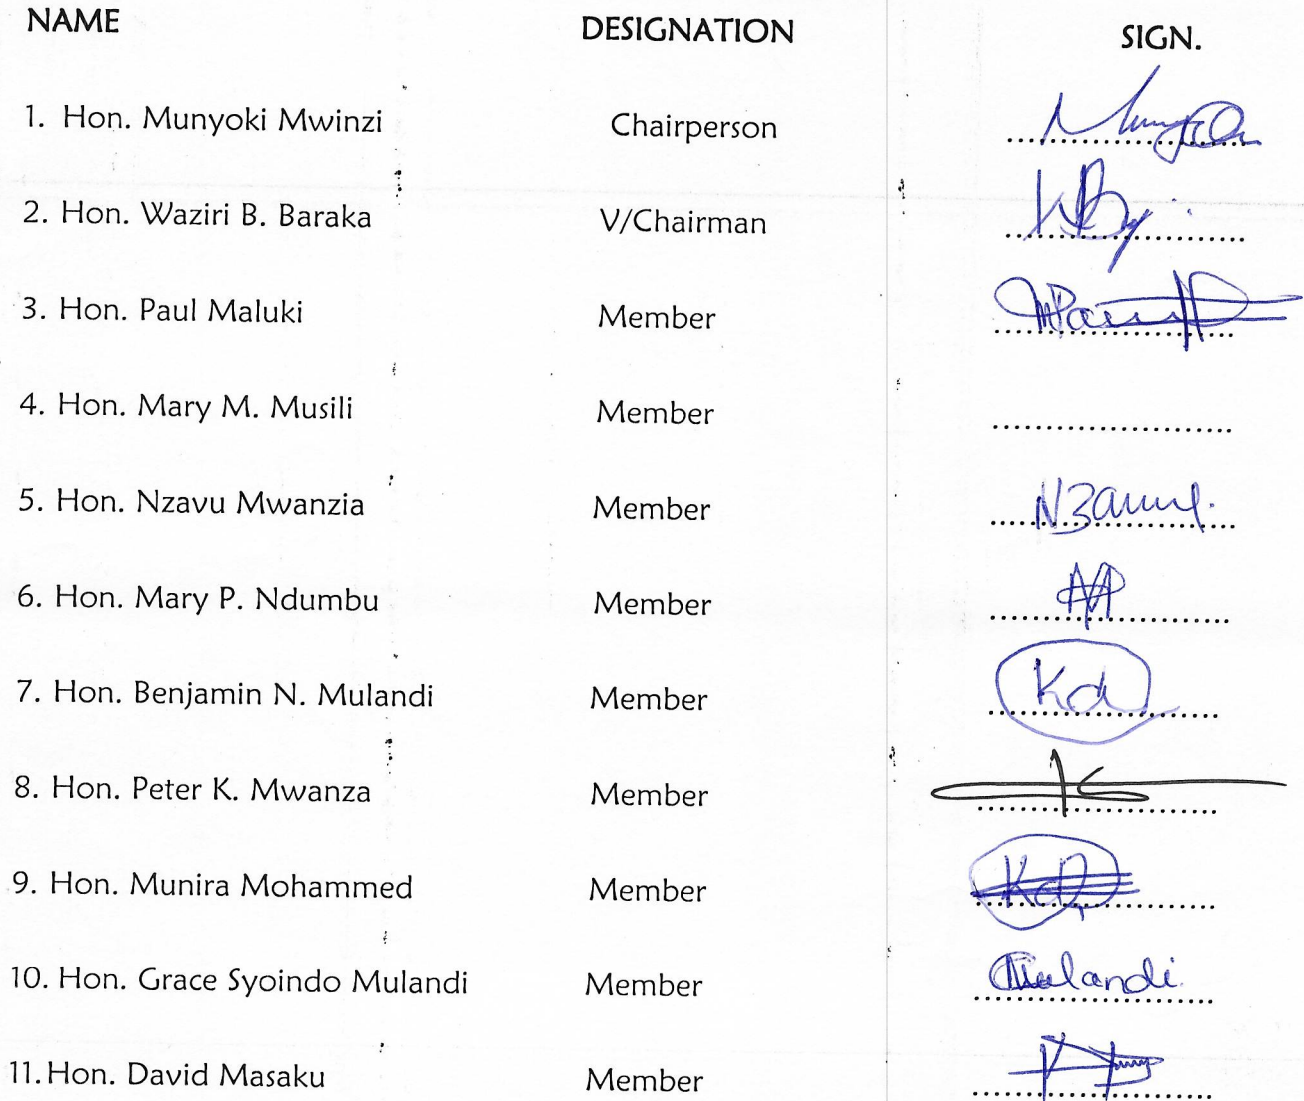 NAME DESIGNATION SIGN.
1. Hon. Munyoki Mwinzi Chairperson
2. Hon. Waziri B. Baraka V/Chairman
3. Hon. Paul Maluki Member
4. Hon. Mary M. Musili Member
5. Hon. Nzavu Mwanzia Member
6. Hon. Mary P. Ndumbu Member
7. Hon. Benjamin N. Mulandi Member Kd
8. Hon. Peter K. Mwanza Member
9. Hon. Munira Mohammed Member
10. Hon. Grace Syoindo Mulandi Member
11. Hon. David Masaku Member